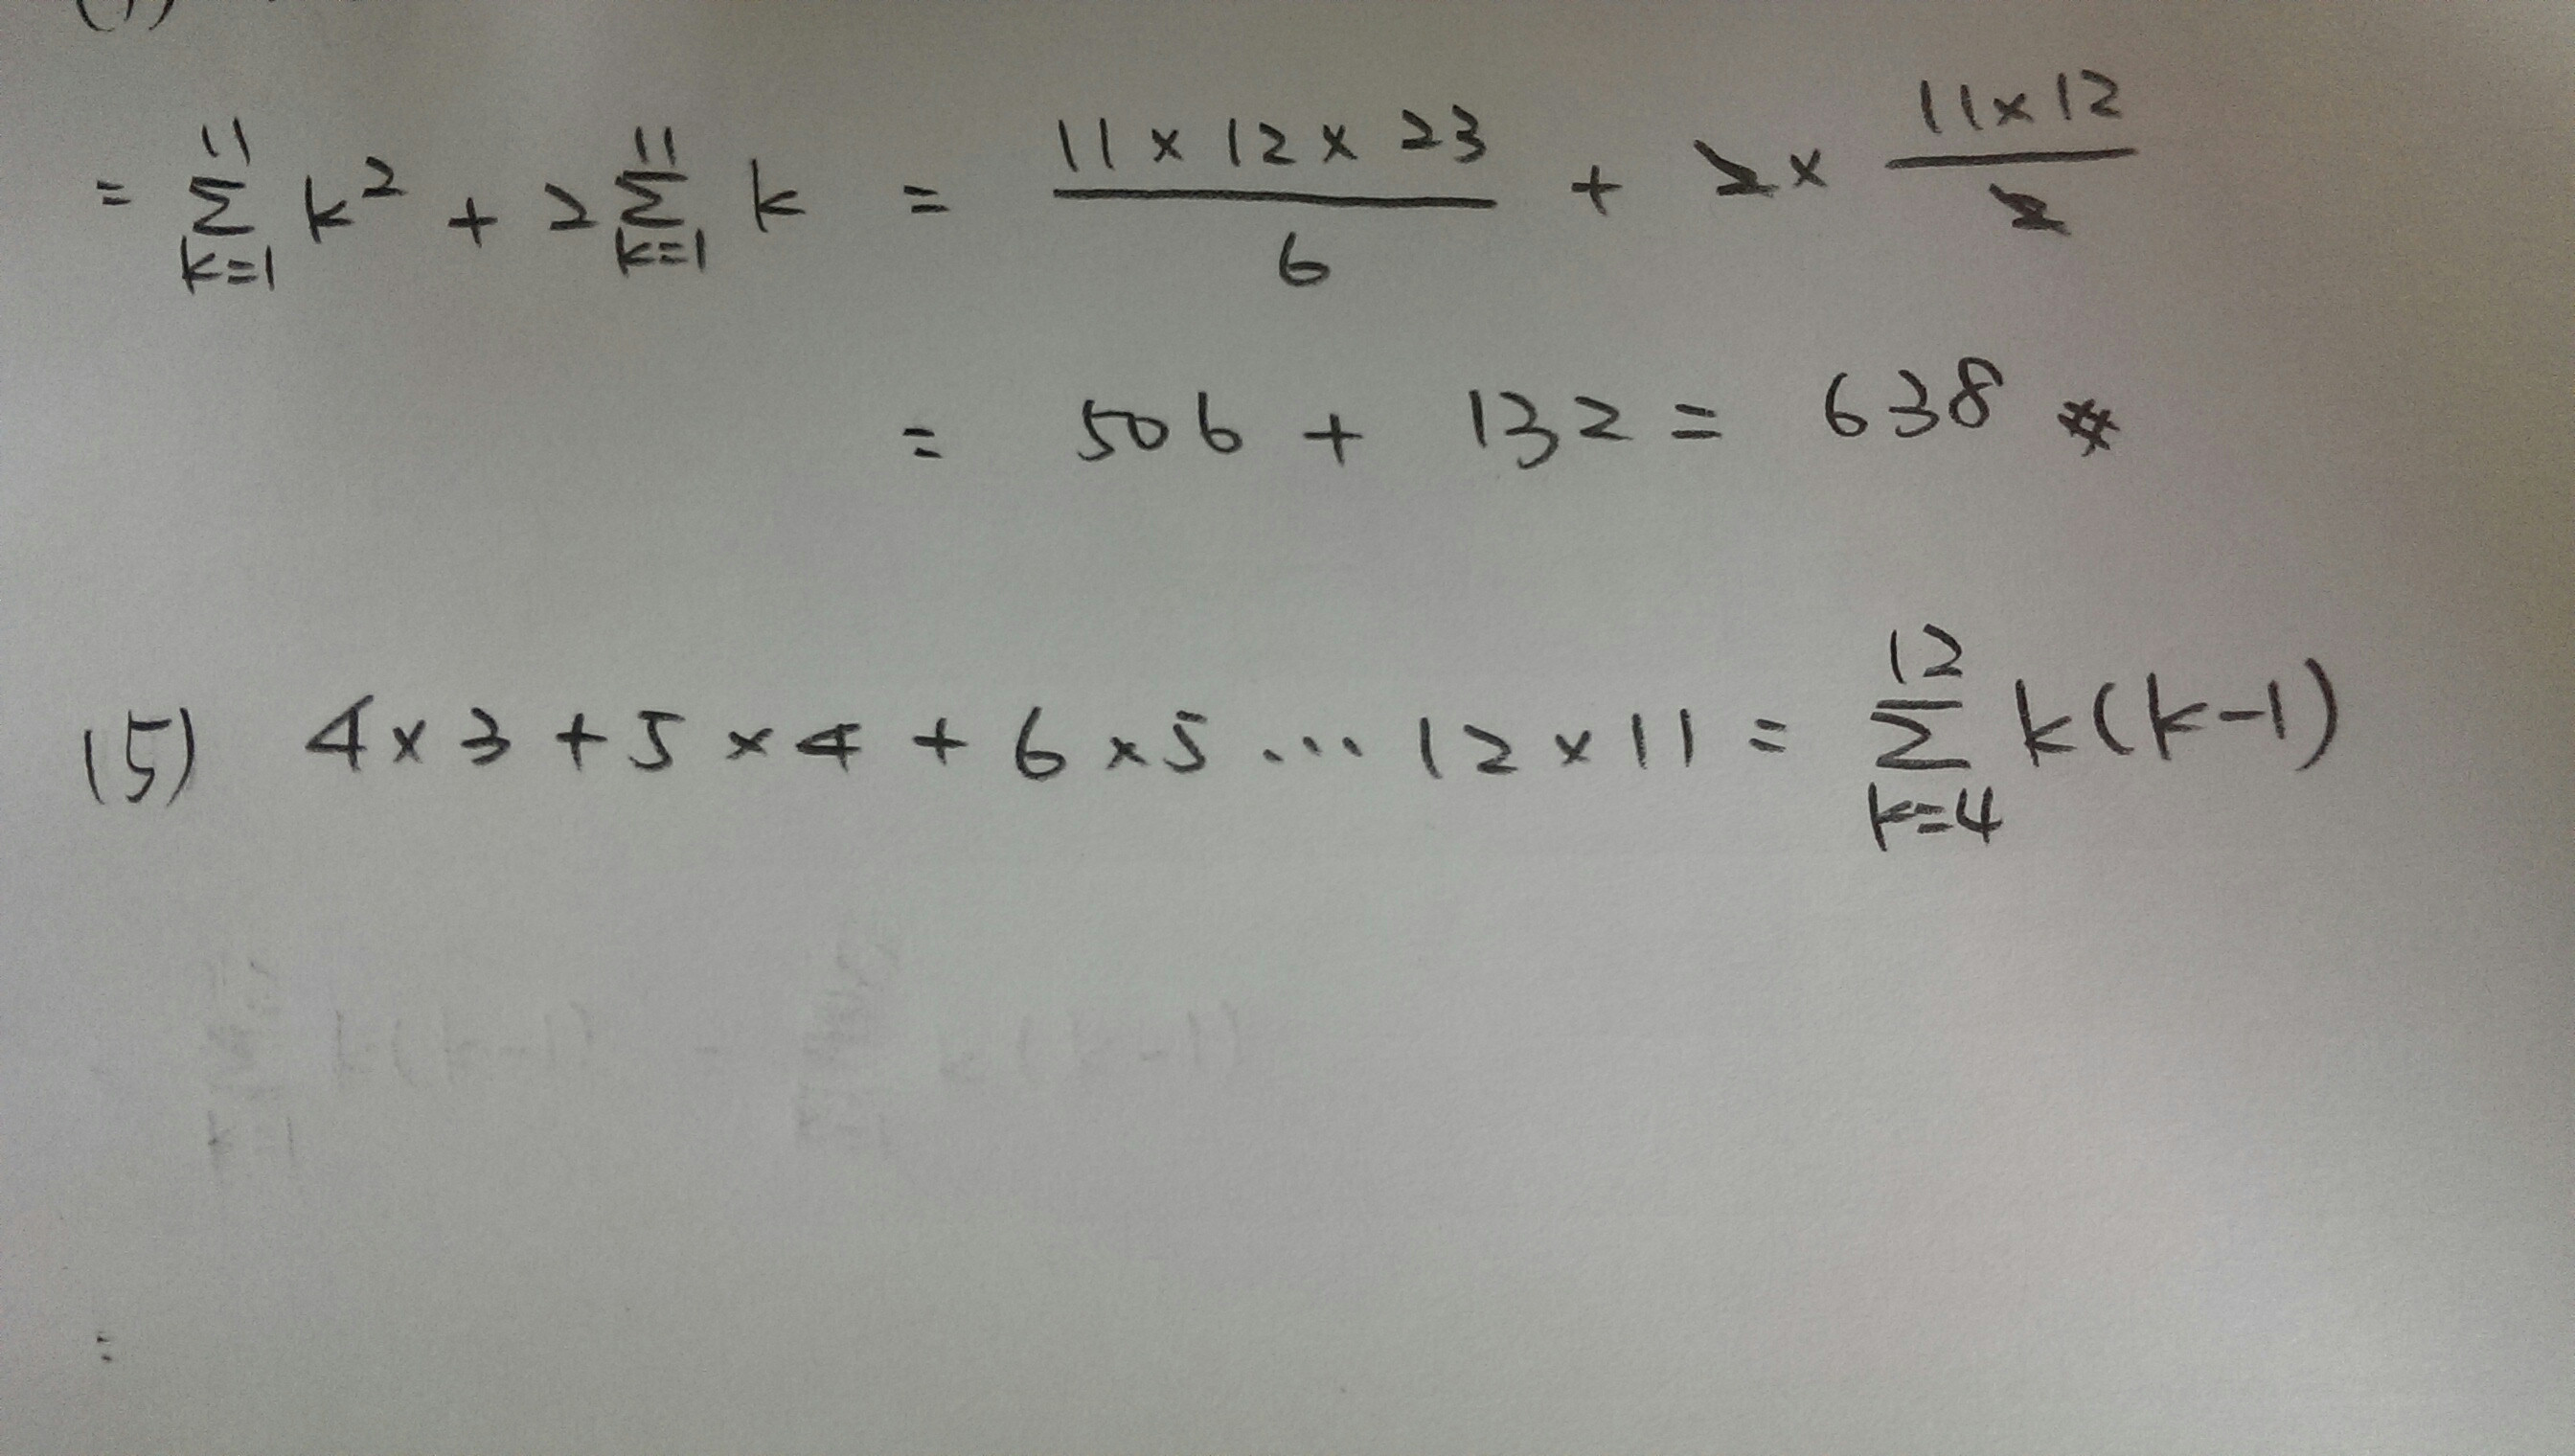 = \sum_{k=1}^{11} k^2 + 2 \sum_{k=1}^{11} k = \frac{11 × 12 × 23}{6} + 2 × \frac{11 × 12}{2}
= 506 + 132 = 638 *
(5) 4 × 3 + 5 × 4 + 6 × 5 ... 12 × 11 = \sum_{k=4}^{12} k(k-1)
k(k-1) - k(k-1)
=